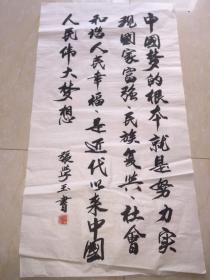 中國梦的根本就是努力实
现國家富强、民族复兴、社會
和谐人民幸福、是近代以来中國
人民伟大梦想
張學玉书